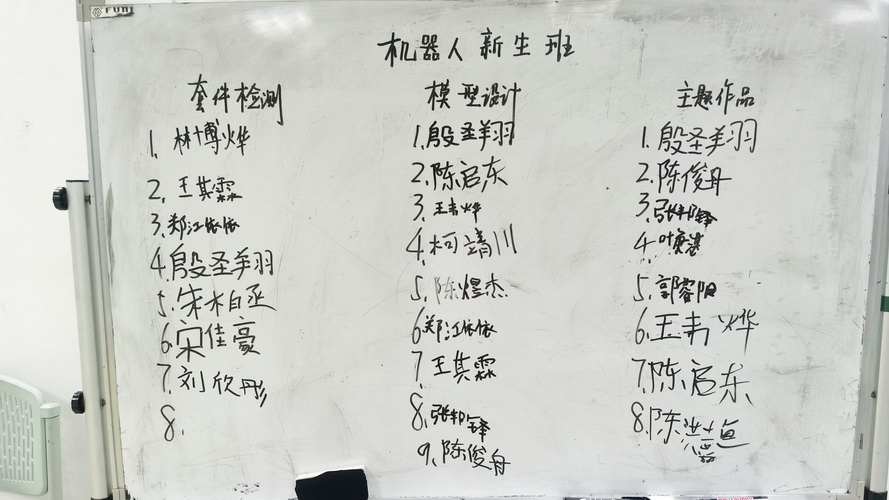 机器人新生班
套件检测
1. 林博烨
2. 王其霖
3. 郑江依依
4. 殷圣羊羽
5. 朱柏丞
6 宋佳豪
7. 刘欣彤
8.
模型设计
1. 殷圣羊羽
2. 陈启东
3. 王韦烨
4. 柯靖川
5. 陈煜杰
6 郑江依依
7 王其霖
8. 张邦锋
9. 陈俊舟
主题作品
1. 殷圣羊羽
2. 陈俊舟
3. 张邦锋
4.
5. 郭睿阳
6. 王韦烨
7. 陈启东
8. 陈